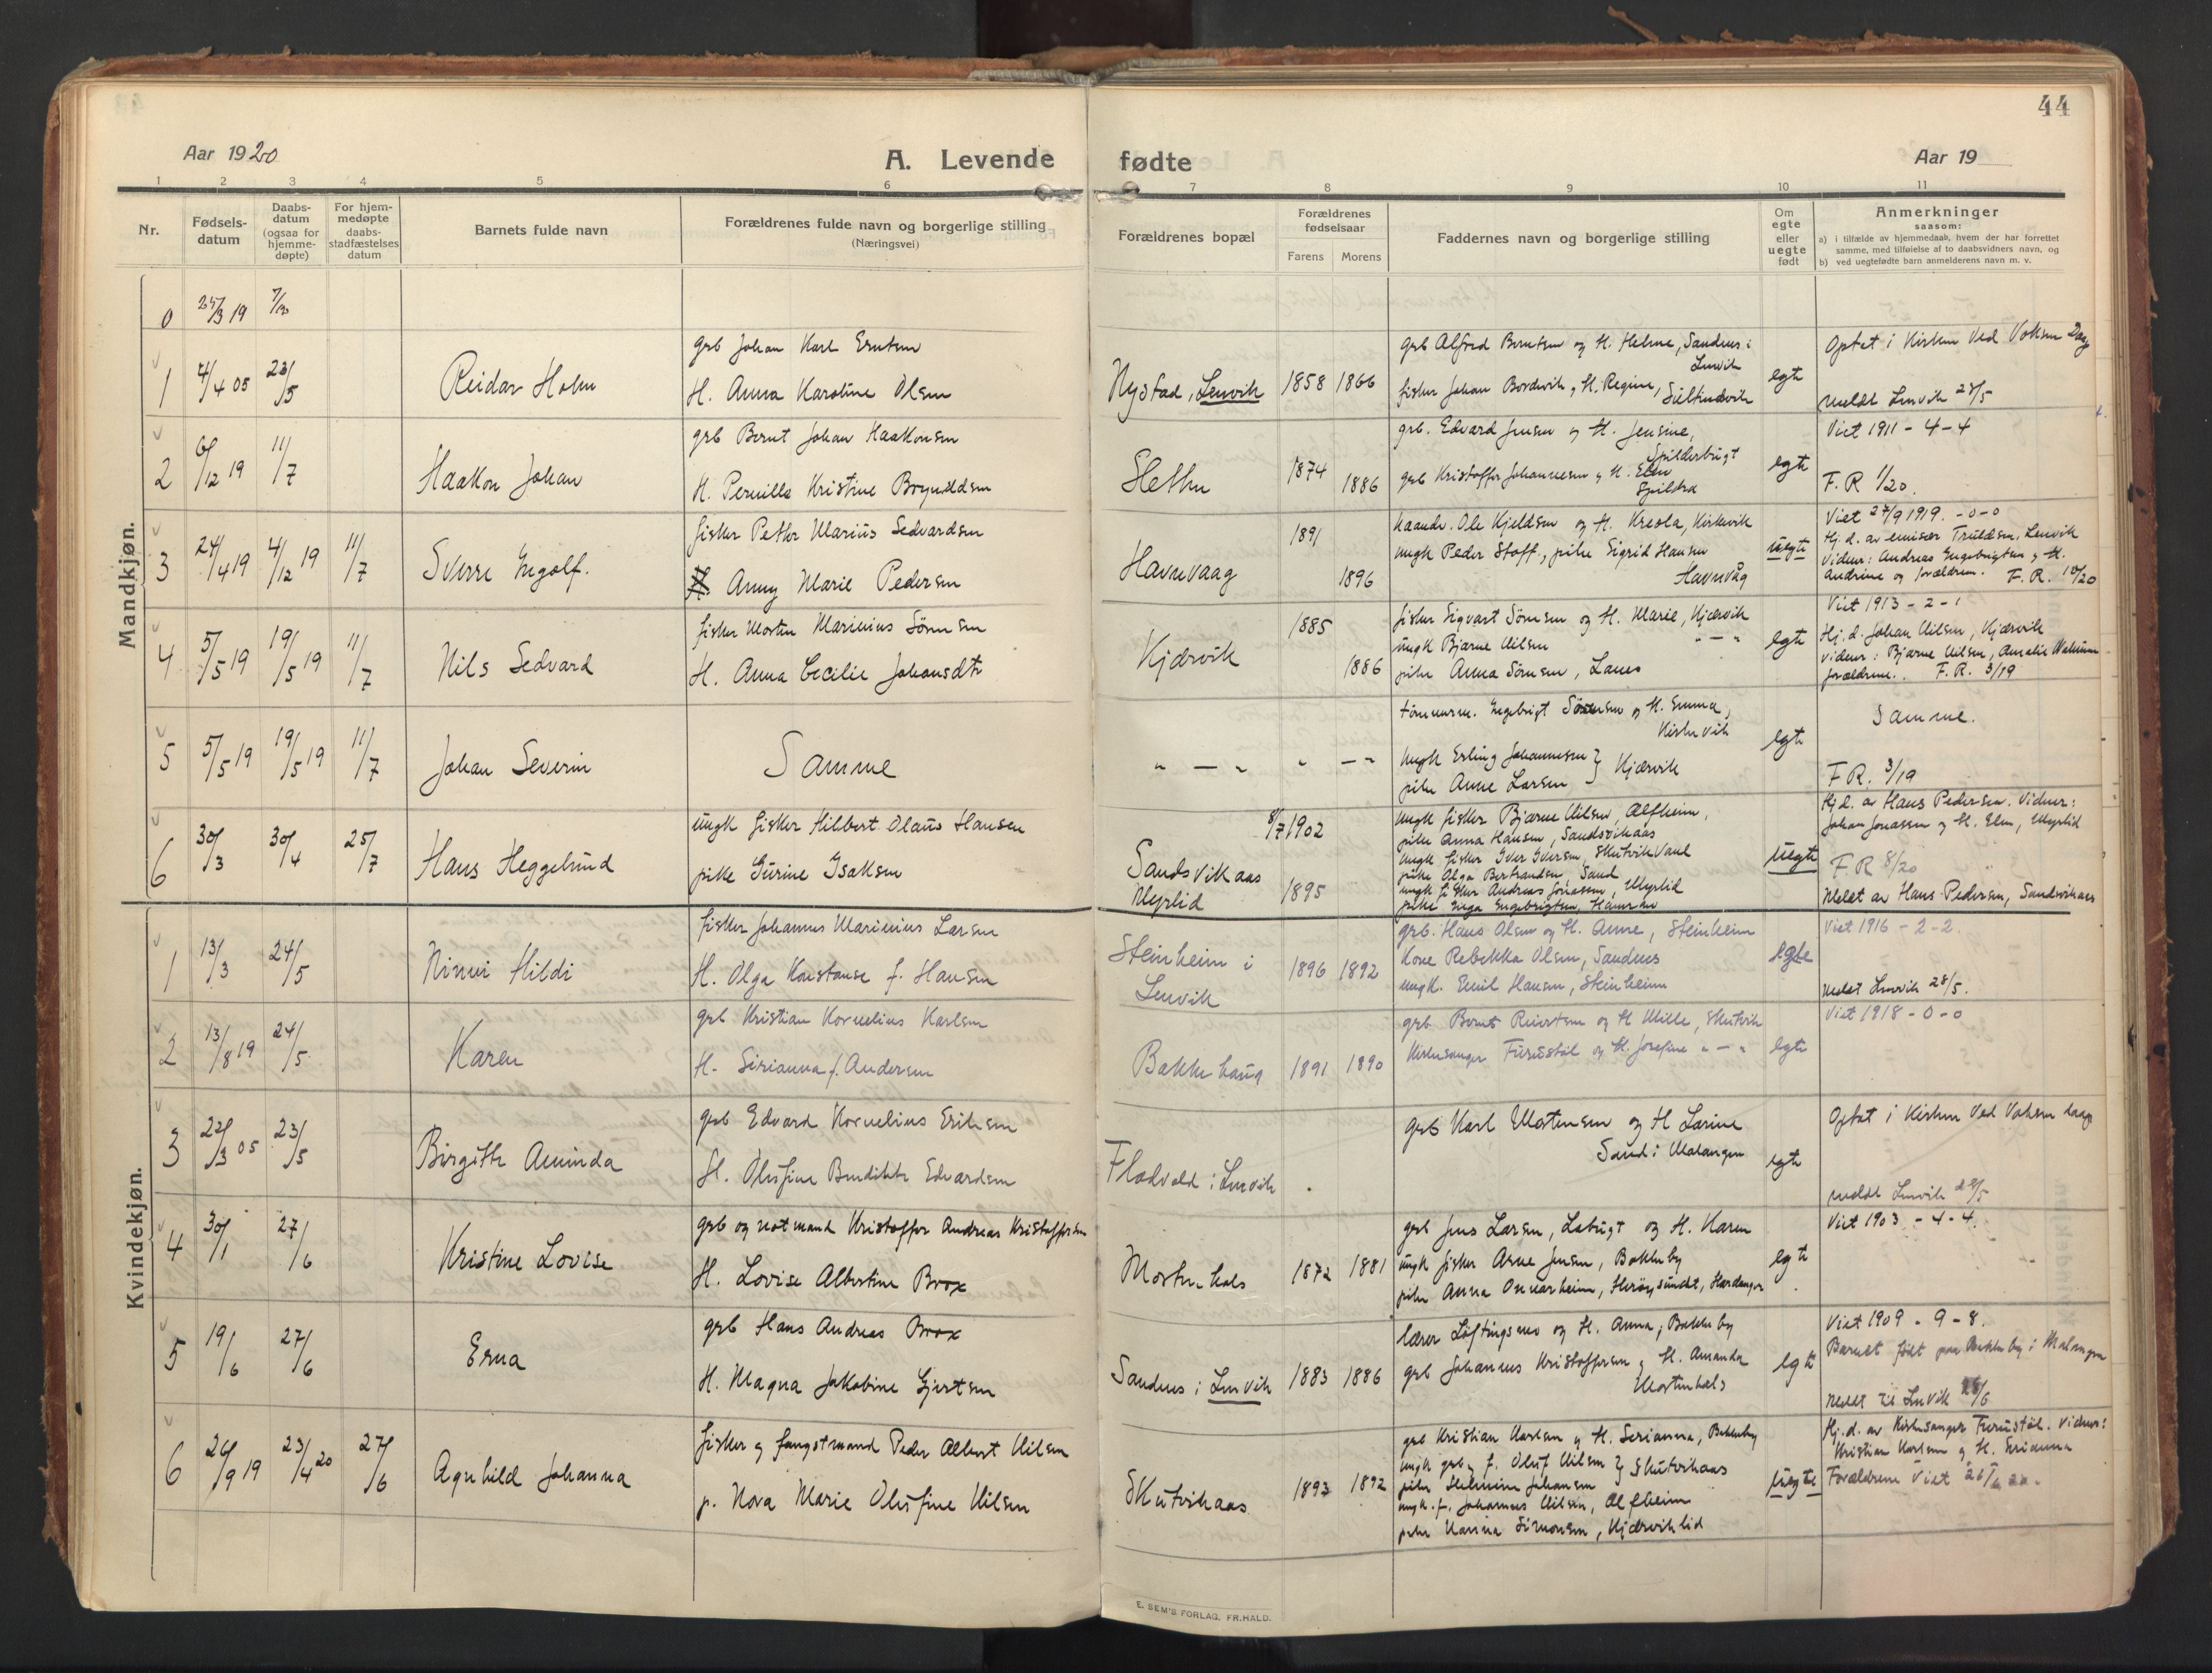 44
Aar 1920
A. Levende fødte
Aar 19
1 2 3 4 5 6 7 8 9 10 11
Nr.
Fødsels-datum
Daabs-datum (ogsaa for hjemme-døpte)
For hjem-medøpte daabs-stadfæstelses datum
Barnets fulde navn
Forældrenes fulde navn og borgerlige stilling
(Næringsvei)
Forældrenes bopæl
Forældrenes fødselsaar
Farens Morens
Faddernes navn og borgerlige stilling
Om egte eller uegte født
Anmerkninger
saasom:
a) i tilfælde av hjemmedaab, hvem der har forrettet samme, med tilføielse af to daabsvidners navn, og
b) ved uegtefødte barn anmelderens navn m. v.
Mandkjøn.
0 25/3 19
1 4/4 05 23/5 Reidar Holm
grb Johan Karl Erntsen
H. Anna Karoline Olsen
Nystad, Lenvik 1858 1866
grb Alfred Berntsen og H. Helene, Sandnes i Lenvik
fisker Johan Bordvik og H. Regine,
egte
Optat i Kirken ved Voksen Daap
meldt Lenvik 28/5
2 6/12 19 11/7 Haakon Johan
grb Bernt Johan Haakonsen
H. Pernille Kristine Brynildsen
1874 1886
grb. Edvard Jensen og H. Jensine, Spilderbugt
grb Kristoffer Johannesen og H. Elen
Spildra
egte
Viet 1911 - 4 - 4
F. R 1/20.
3 24/4 19 4/12 19 11/7 Sverre Ingolf.
fisker Petter Marius Sedvardsen
H. Anny Marie Pedersen
Havnvaag 1891 1896
haandv. Ole Kjeldsen og H. Kreola, Kirkevik
ungk Peder Stoff, pike Sigrid Hansen
Havnvåg
uegte
Viet 27/9 1919. -0-0
Hj. d. av emisær Truldsen, Lenvik
Vidner: Andreas Engebrigtsen og H.
Andrine og forældren. F. R. 10/20
4 5/5 19 19/5 19 11/7 Nils Sedvard
fisker Morten Marinius Sørensen
H. Anna Cecilie Johansdtr
Kjærvik 1885 1886
fisker Sigvart Sørensen og H. Marie, Kjærvik
ungk Bjarne Nilsen " — "
pike Anna Sørensen, Lanes
egte
Viet 1913 - 2 - 1
Hj. d. Johan Nilsen, Kjærvik
vidner: Bjarne Nilsen, Amalie
forældrene. F. R. 3/19
5 5/5 19 19/5 19 11/7 Johan Severin
Samme
" — " " — "
tømmerm. Engebrigt Sørensen og H. Emma,
Kirkevik
ungk Erling Johannesen } Kjærvik
pike Anne Larsen
egte
Samme.
F R. 3/19
6 30/3 30/4 25/7 Hans Heggelund
ungk fisker Hilbert Olaus Hansen
pike Gurine Isaksen
Sandsvikaas
Myrlid
8/7 1902
1895
ungk fisker Bjarne Nilsen, Alfheim,
pike Anna Hansen, Sandsvikaas
ungk fisker Iver Iversen, Skutvikvand
pike Olga Bertrandsen, Sand
ungk fisker Andreas Jonassen, Myrlid
pike Inga Engebrigtsen,
uegte
Hj d. av Hans Pedersen. Vidner:
Johan Jonassen og H. Elen, Myrlid
F R 8/20
Meldt av Hans Pedersen, Sandsvikaas
Kvindekjøn.
1 13/3 24/5 Ninni Hildi
fisker Johannes Marinius Larsen
H. Olga Konstanse f. Hansen
Steinheim i
Lenvik
1896 1892
grb. Hans Olsen og H. Anne, Steinheim
Kone Rebekka Olsen, Sandnes
ungk. Emil Hansen, Steinheim
egte
Viet 1916 - 2 - 2.
meldt Lenvik 28/5.
2 13/8 19 24/5 Karen
grb Kristian Kornelius Karlsen
H. Sirianna f. Andersen
Bakkehaug 1891 1890
grb Bernt Reiertsen og H Mille, Skutvik
Kirkesanger Furustøl og H. Josefine " — "
egte
Viet 1918 - 0 - 0
3 22/3 05 23/5 Birgitte Aminda
grb Edvard Kornelius Eriksen
H. Olufine Bendikte Edvardsen
Flodvold i Lenvik
grb Karl Mortensen og H Larine
Sand i Malangen
egte
Optat i Kirken ved Voksen daap
meldt Lenvik 28/5
4 30/1 27/6 Kristine Lovise
grb og notmand Kristoffer Andreas Kristoffersen
H. Lovise Albertine Brox
Mortenhals 1872 1881
grb Jens Larsen, Labugt og H. Karen
ungk fisker Arne Jensen, Bakkeby
pike Anna Onnarheim, Herøysundet, Hardanger
egte
Viet 1903 - 4 - 4.
5 19/6 27/6 Erna
grb Hans Andreas Brox
H. Magna Jakobine Gjertsen
Sandnes i Lenvik 1883 1886
lærer Løftingsmo og H. Anna, Bakkeby
grb Johannes Kristoffersen og H. Amanda
Mortenhals
egte
Viet 1909 - 9 - 8.
Barnet født paa Bakkeby i Malangen
Meldt til Lenvik 28/6
6 26/9 19 23/4 20 27/6 Agnhild Johanna
fisker og fangstmand Peder Albert Nilsen
p. Nora Marie Olufine Nilsen
Skutvikaas 1893 1892
grb Kristian Karlsen og H. Serianna, Bakkeby
ungk grb og f. Oluf Nilsen } Skutvikaas
pike Helmine Johansen
ungk. f. Johannes Nilsen, Alfheim
pike Hanna Simonsen, Kjærviklid
uegte
Hj. d. av Kirkesanger Furustøl. Vidner:
Kristian Karlsen og H. Serianna
Forældrene Viet 26/6 20.
E. SEM'S FORLAG, FR.HALD.